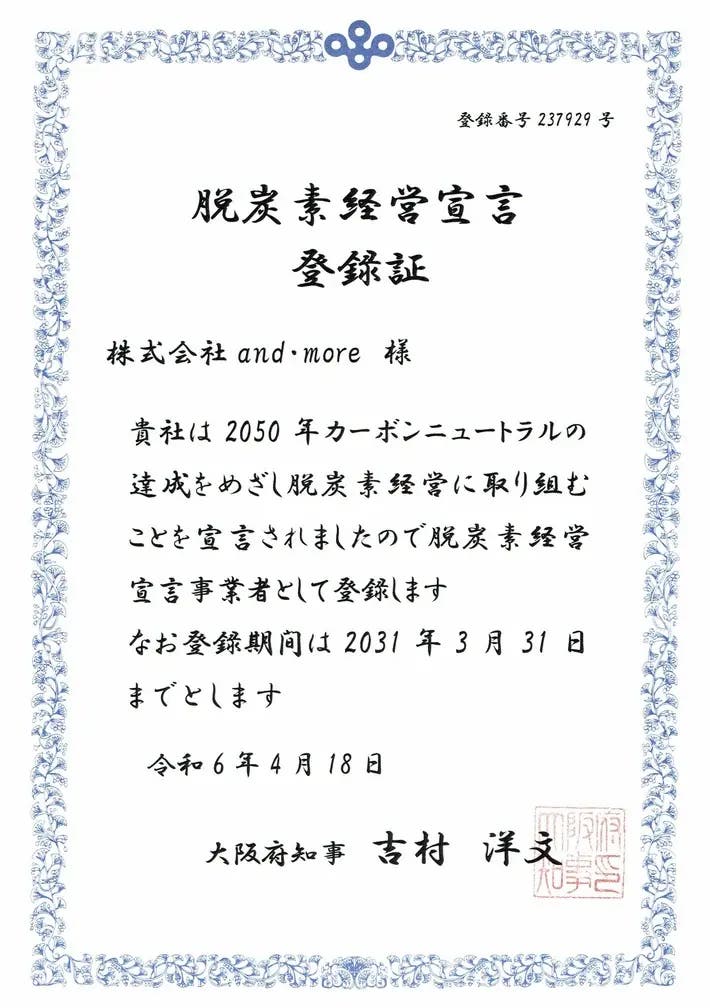 登録番号 237929 号
脱炭素経営宣言
登録証
株式会社 and・more 様
貴社は 2050 年カーボンニュートラルの
達成をめざし脱炭素経営に取り組む
ことを宣言されましたので脱炭素経営
宣言事業者として登録します
なお登録期間は 2031 年 3 月 31 日
までとします
令和 6 年 4 月 18 日
大阪府知事 吉村 洋文